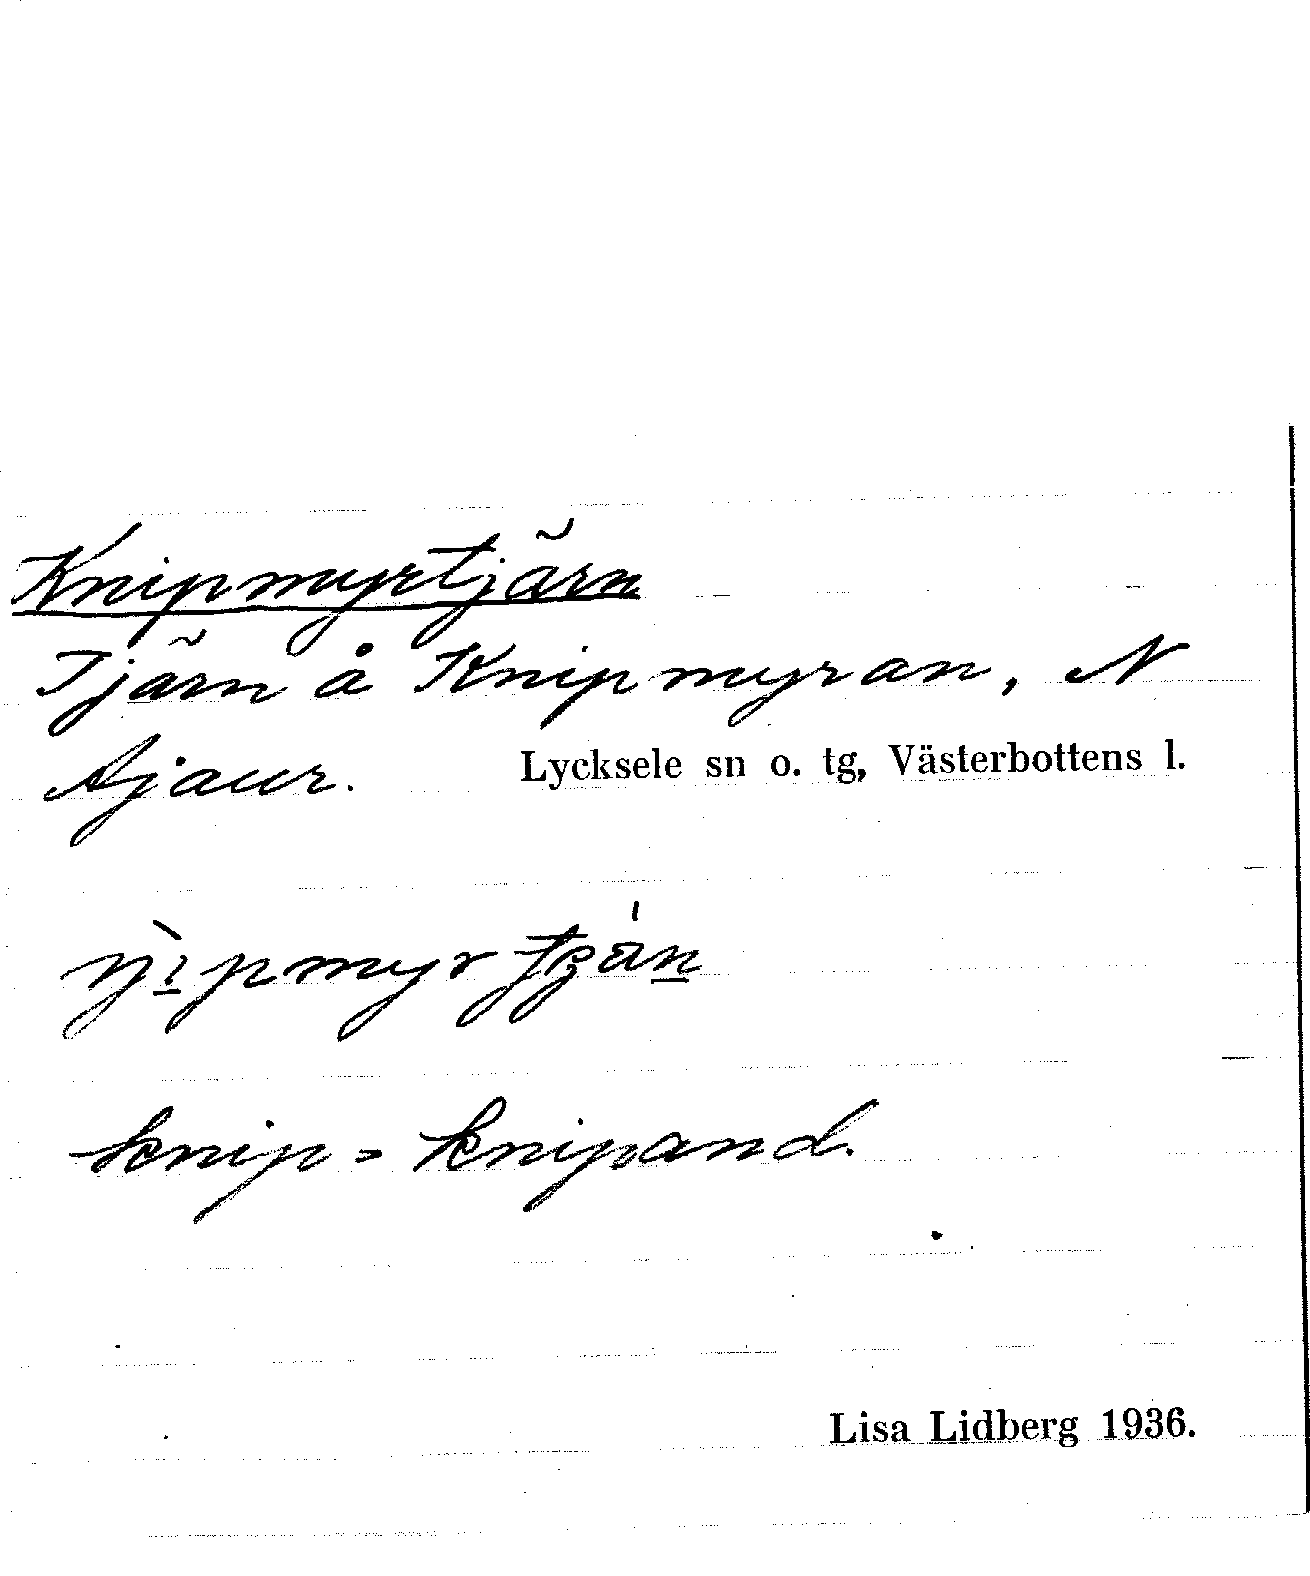 Knipmyrtjärn
Tjärn å Knipmyran, N
Ajaur. Lycksele sn o. tg, Västerbottens l.
knip = knipand.
Lisa Lidberg 1936.